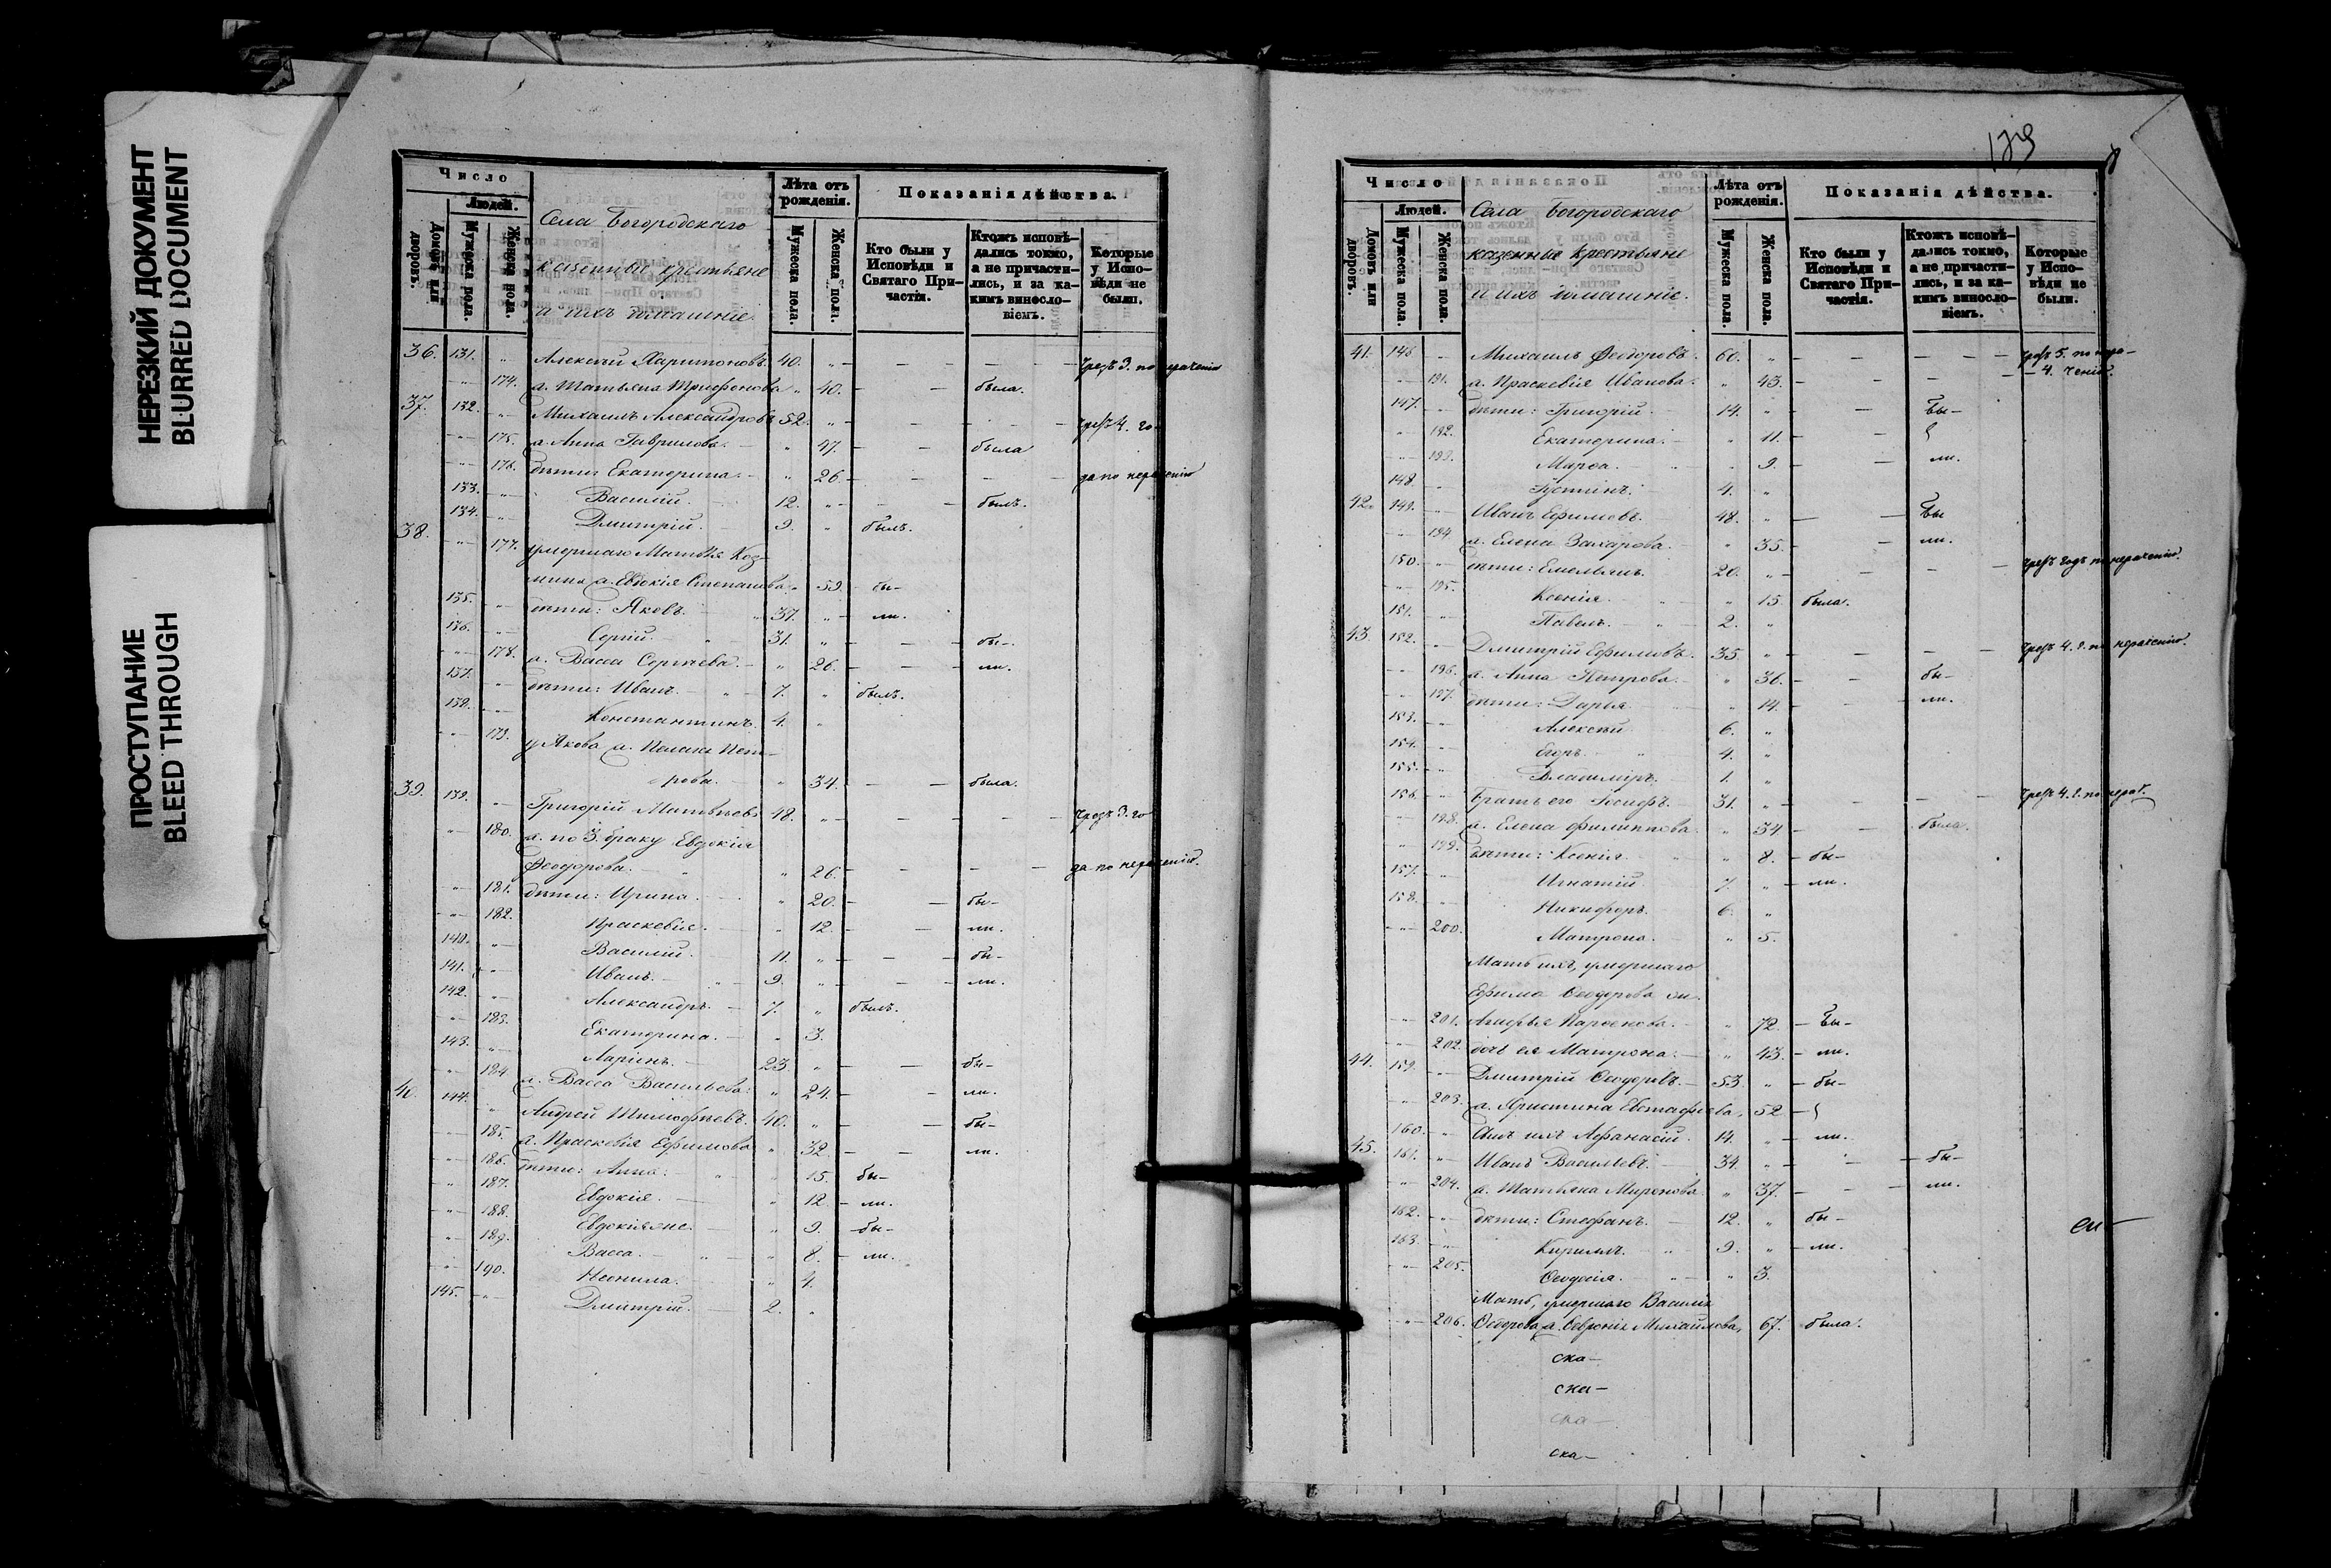 НЕРЕЗКИЙ ДОКУМЕНТ
BLURRED DOCUMENT
ПРОСТУПАНИЕ
BLEED THROUGH
Число
Людей.
Домовъ или дворовъ.
Мужеска пола.
Женска пола.
Села Богородскаго
казенные крестьяне
и ихъ домашніе.
Лѣта отъ рожденія.
Мужеска пола.
Женска пола.
Показанія дѣйства.
Кто были у Исповѣди и Святаго Причастія.
Ктожъ исповѣдались токмо, а не причастились, и за какимъ винословіемъ.
Которые у Исповѣди не были.
36. 131. Алексѣй Харитоновъ. 40. чрезъ 3. по нераченію
174. ж. Татьяна Трифонова 40. была.
37. 132. Михаилъ Александровъ 52. чрезъ 4. го
175. ж. Анна Гаврилова. 47. была
176. дѣти: Екатерина. 26. да по нераченію
133. Василій. 12. былъ.
134. Дмитрій. 9. былъ.
38. 177. умершаго Матвѣя Коз-
мина ж. Евдокія Степанова. 59. бы-
135. дѣти: Яковъ. 37. ли.
136. Сергій. 31. бы-
178. ж. Васса Сергѣева. 26. ли.
137. дѣти: Иванъ. 7. былъ.
138. Константинъ. 4.
179. у Якова ж. Пелагія Пет-
рова. 34. была.
39. 139. Григорій Матвѣевъ 48. чрезъ 3. го
180. ж. по 3. браку Евдокія
Феодорова. 26. да по нераченію.
181. дѣти: Ирина. 20. бы-
182. Праскевія. 12. ли.
140. Василій. 11. бы-
141. Иванъ. 9. ли.
142. Александръ. 7. былъ.
183. Екатерина. 3.
143. Ларіонъ. 23. бы-
184. ж. Васса Васильева. 24. ли.
40. 144. Андрей Тимофѣевъ. 40. бы-
185. ж. Праскевія Ефимова 32. ли.
186. дѣти: Анна. 15. бы-
187. Евдокія. 12. ли.
188. Евдокія же. 9. бы-
189. Васса. 8. ли.
190. Неонила. 4.
145. Дмитрій. 2.
179
Число
Людей.
Домовъ или дворовъ.
Мужеска пола.
Женска пола.
Села Богородскаго
казенные крестьяне
и ихъ домашніе.
Лѣта отъ рожденія.
Мужеска пола.
Женска пола.
Показанія дѣйства.
Кто были у Исповѣди и Святаго Причастія.
Ктожъ исповѣдались токмо, а не причастились, и за какимъ винословіемъ.
Которые у Исповѣди не были.
41. 146. Михаилъ Феодоровъ. 60. чрезъ 5. по нера-
191. ж. Праскевія Иванова. 43. 4. ченію.
147. дѣти: Григорій. 14. бы-
192. Екатерина. 11.
193. Марѳа. 9. ли.
148. Іустинъ. 4.
42. 149. Иванъ Ефимовъ. 48. бы
194 ж. Елена Захарова. 35. ли.
150. дѣти: Емельянъ. 20. чрезъ годъ по нераченію.
195. Ксенія. 15. была.
151. Павелъ. 2.
43. 152. Дмитрій Ефимовъ. 35. чрезъ 4. г. по нераченію.
196. ж. Анна Петрова. 36. бы-
197. дѣти: Дарья 14. ли.
153. Алексѣй 6.
154. Егоръ 4.
155. Владиміръ. 1.
156. Братъ его Іосифъ. 31. чрезъ 4. г. по нерач.
198. ж. Елена Филиппова. 34 была.
199. дѣти: Ксенія. 8. бы-
157. Игнатій. 7. ли.
158. Никифоръ. 6.
200. Матрена. 5.
Мать ихъ, умершаго
Ефима Ѳеодорова ж.
201. Агафья Парѳенова. 72. бы-
202. дочь ея Матрона. 43. ли.
44. 159. Дмитрій Ѳеодоровъ. 53. бы-
203. ж. Христина Евстафьева. 52
160. Сынъ ихъ Аѳанасій. 14. ли.
45. 161. Иванъ Васильевъ. 34. бы-
204. ж. Татьяна Миронова 37. ли.
162. дѣти: Стефанъ. 12. бы-
163. Кириллъ. 9. ли.
205. Ѳеодосія. 3.
Мать, умершаго Василія
206. Ѳедорова ж. Ѳеврснія Михайлова. 67. была.
ска-
ска-
ска-
ска-